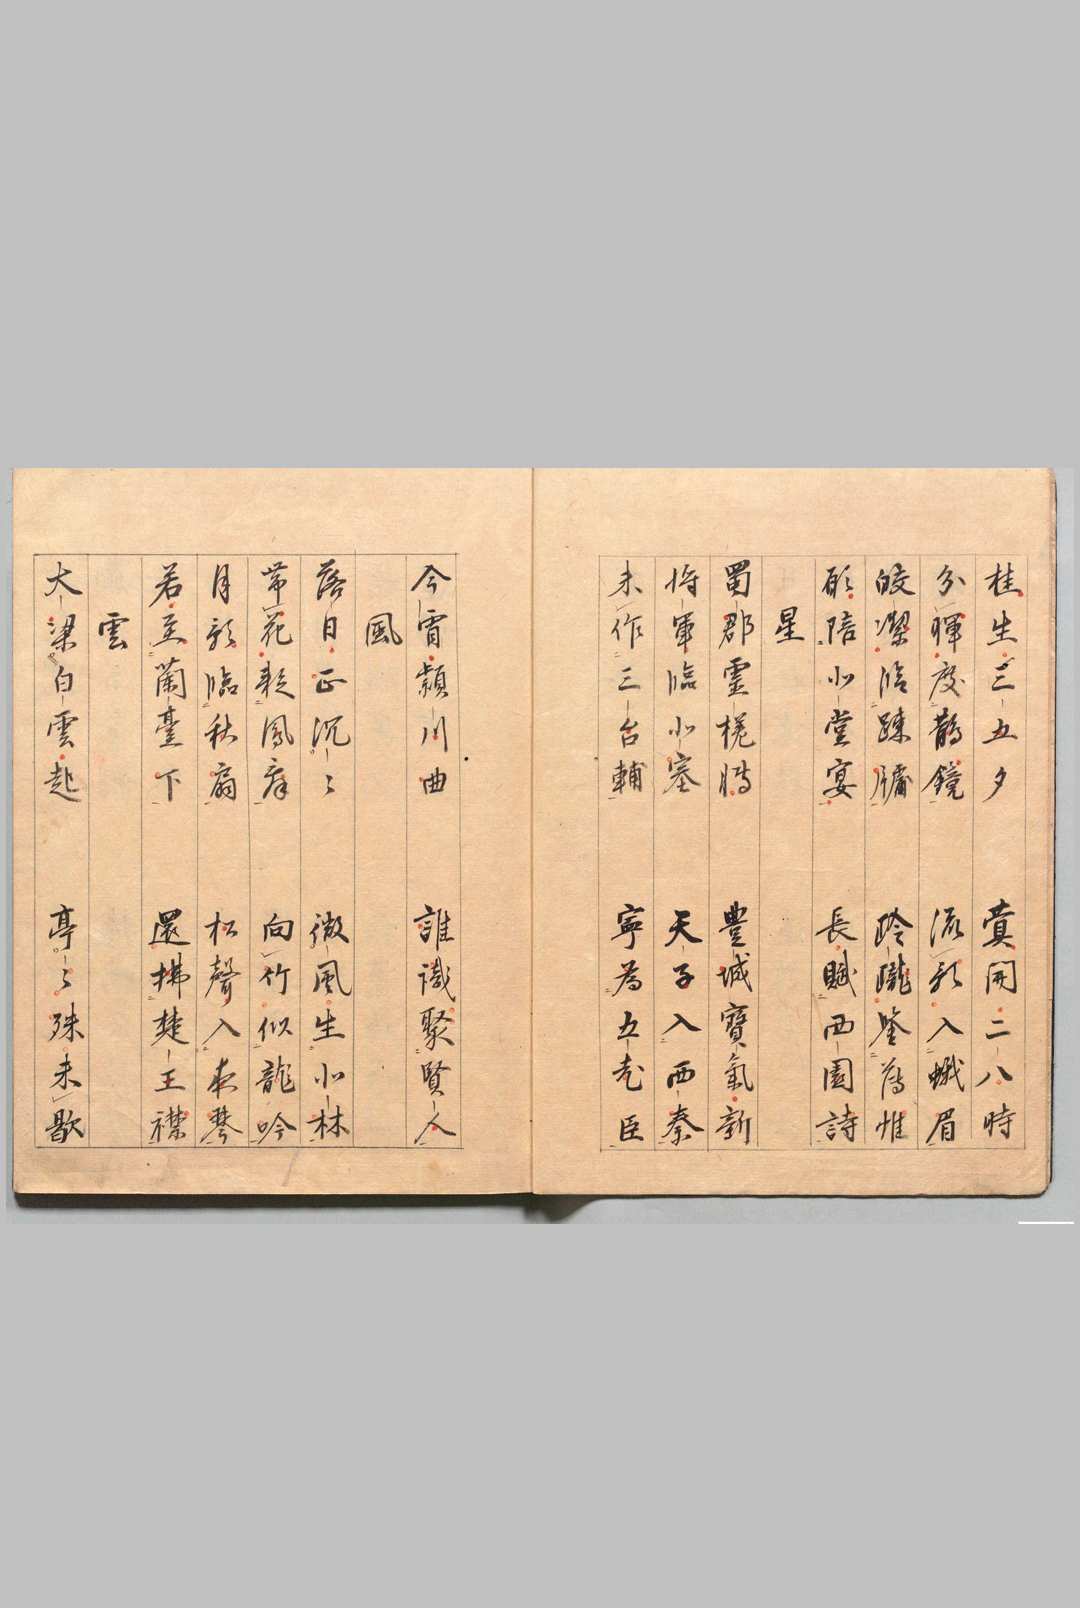 桂生三五夕　蓂開二八時
分暉度鵲鏡　流影入蛾眉
皎潔臨疎牖　玲瓏鑒薄惟
願陪北堂宴　長賦西園詩
星
蜀郡靈槎轉　豊城寶氣新
将軍臨北塞　天子入西秦
未作三台輔　寧為五老臣
今宵潁川曲　誰識聚賢人
風
落日正沉〻　微風生北林
帯花疑鳳舞　向竹似龍吟
月影臨秋扇　松聲入夜琴
若至蘭臺下　還拂楚王襟
雲
大梁白雲起　亭〻殊未歇